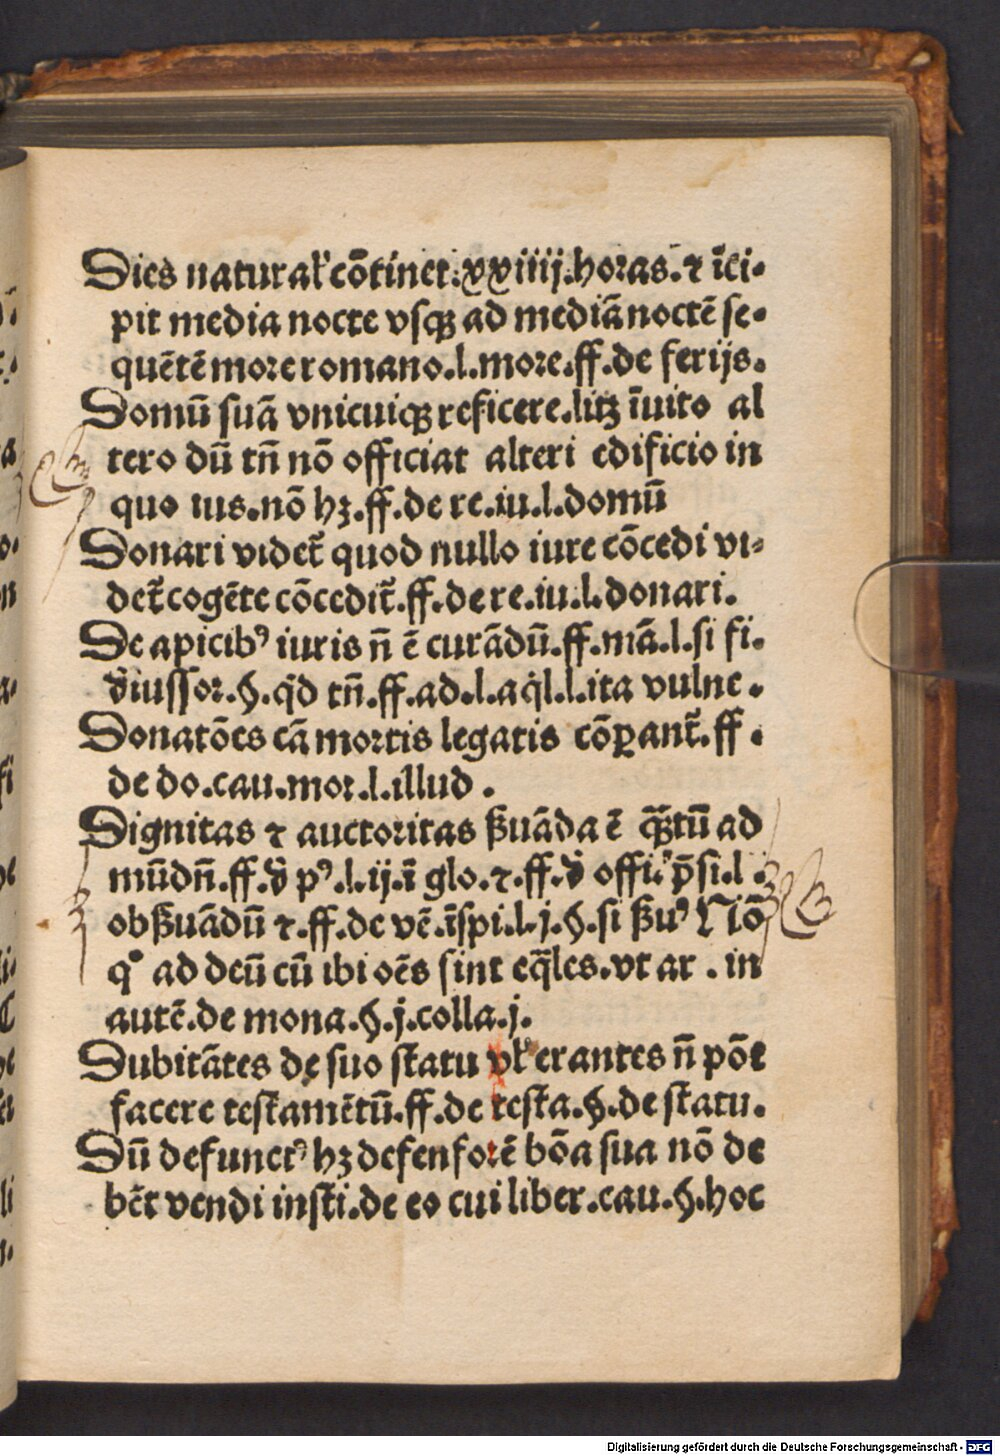 Dies natural' cōtinet.xxiiij.horas.⁊ īci-
pit media nocte vsqꝫ ad mediā noctē se-
quētē more romano.l.more.ff.de ferijs.
Domū suā vnicuiqꝫ reficere.litꝫ īuito al
tero dū tn̄ nō officiat alteri edificio in
quo ius.nō hꝫ.ff.de re.iu.l.domū
Donari videt᷑ quod nullo iure cōcedi vi-
det᷑ cogēte cōcedit᷑.ff.de re.iu.l.donari.
De apicibꝰ iuris n̄ ē curādū.ff.mā.l.si fi.
d̓iussor.§.qd̓ tn̄.ff.ad.l.aql̓.l.ita vulne.
Donatōes cā mortis legatis cōꝑant᷑.ff.
de do.cau.mor.l.illud.
Dignitas ⁊ auctoritas ẞuāda ē qᷓtū ad
mūdn̄.ff.d̓ pꝰ.l.ij.ī glo.⁊.ff.d̓ offi.p̄si.l.
obẞuādū ⁊.ff.de vē.īspi.l.j.§.si ẞuꝰ Nō
q° ad deū cū ibi oēs sint eq̄les.vt ar.in
autē.de mona.§.j.colla.j.
Dubitātes de suo statu vl' erantes n̄ pōt
facere testamētū.ff.de testa.§.de statu.
Dū defunctꝰ hꝫ defensorē bōa sua nō de
bēt vendi insti.de eo cui liber.cau.§.hoc
Digitalisierung gefördert durch die Deutsche Forschungsgemeinschaft - DFG